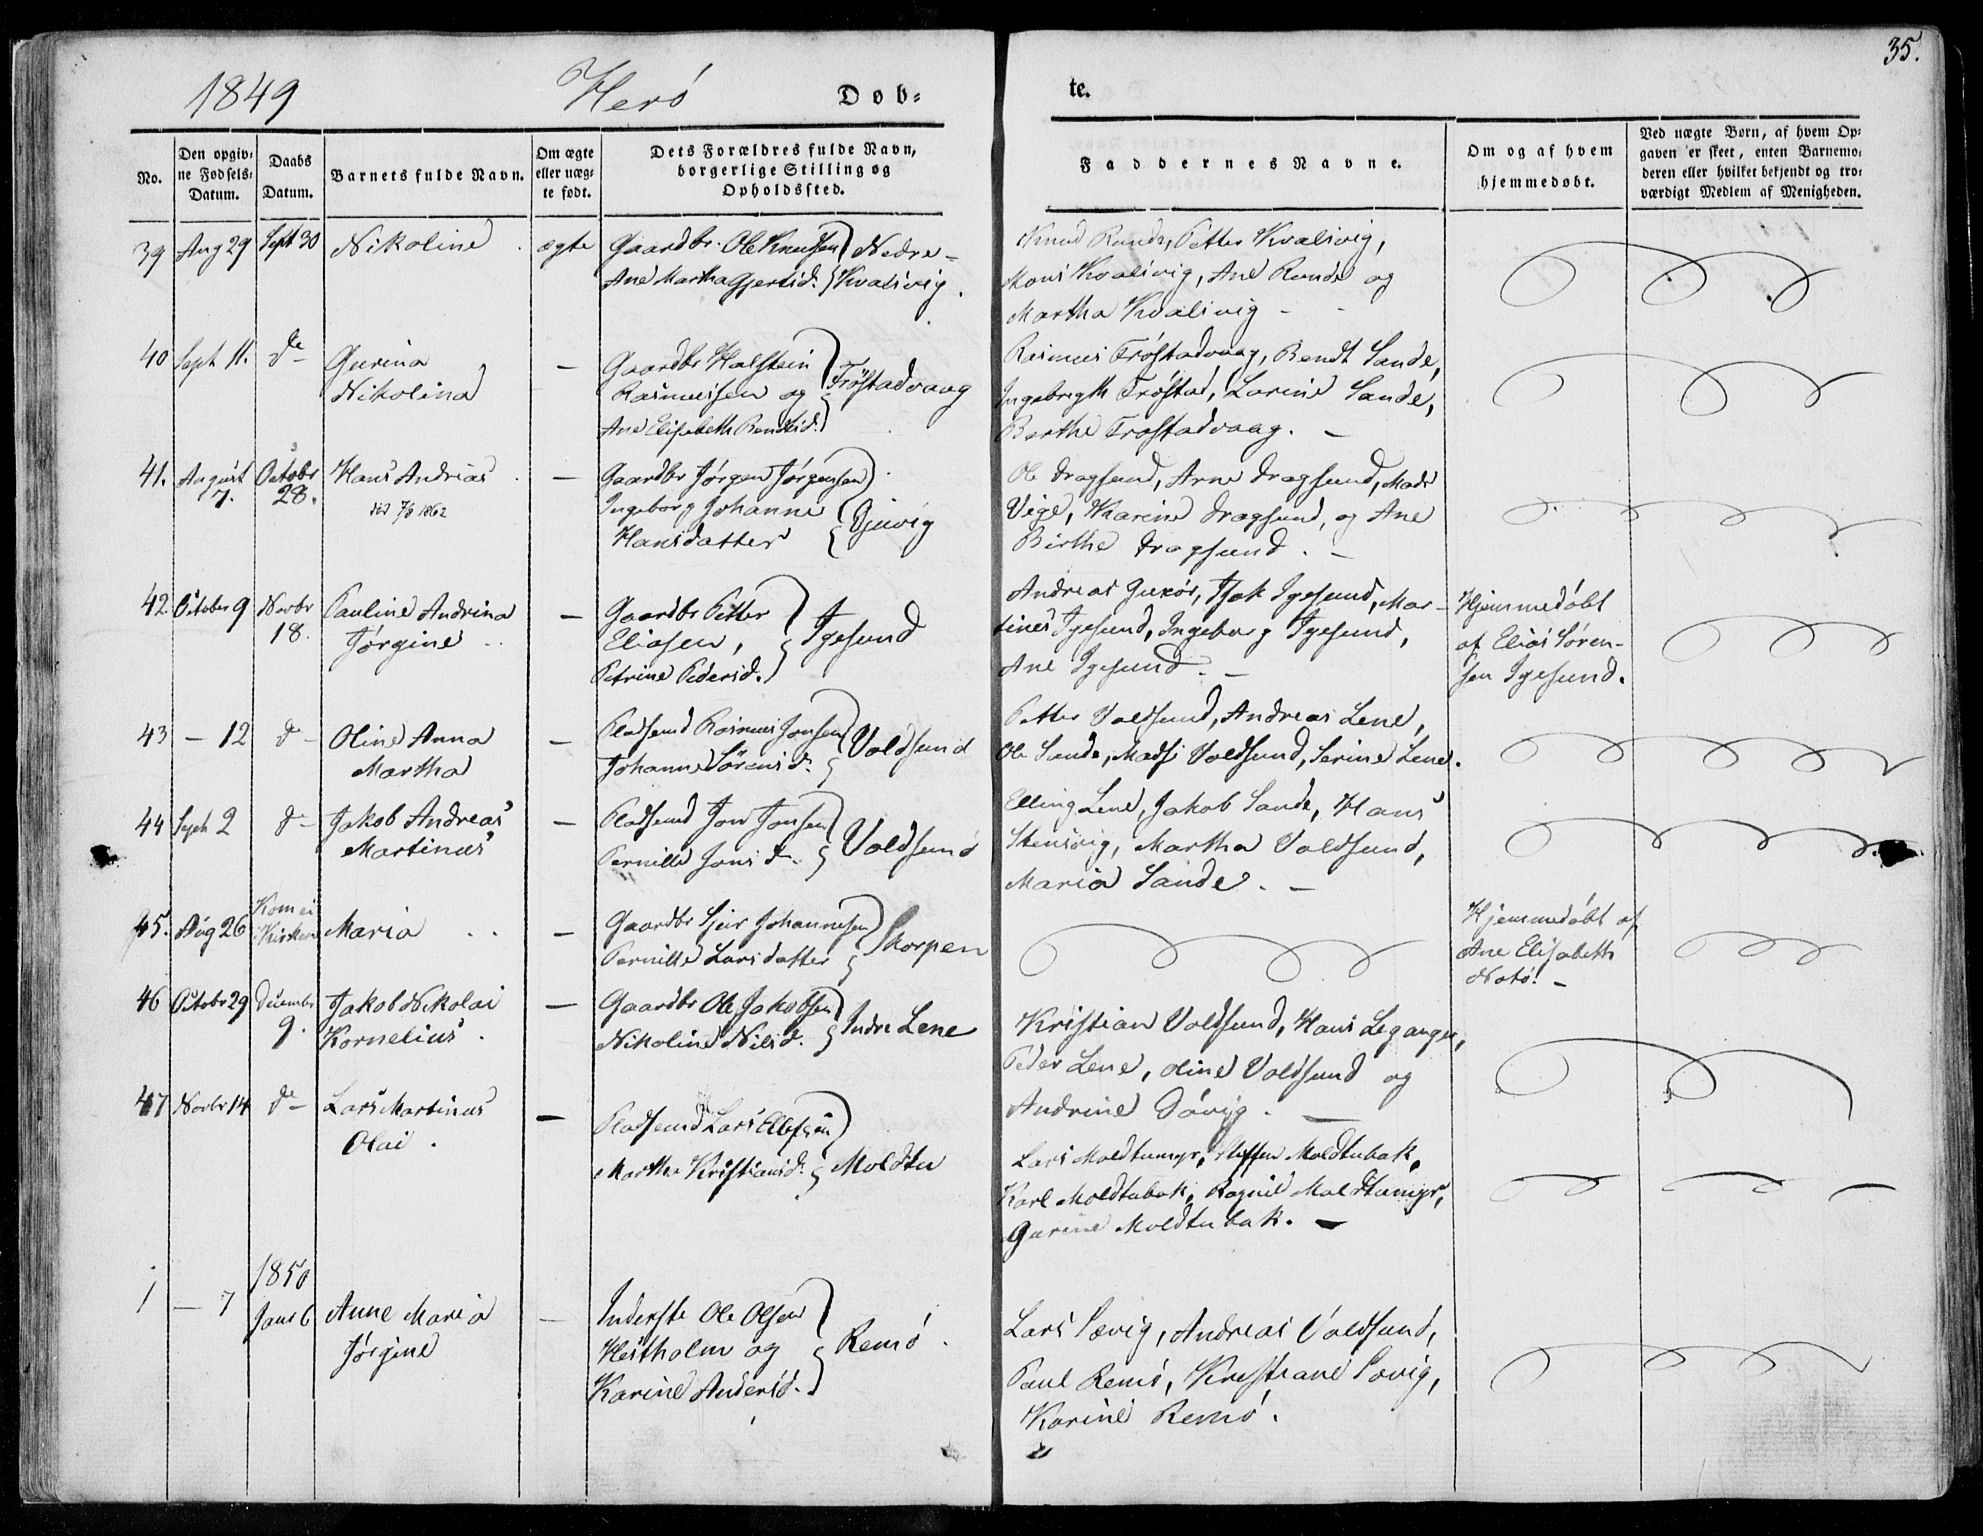 35.
1849 Herö Døb=
te.
No. Den opgivne Fødsels-Datum. Daabs Datum. Barnets fulde Navn. Om ægte eller uægte født. Dets Forældres fulde Navn, borgerlige Stilling og Opholdssted.
Faddernes Navne. Om og af hvem hjemmedøbt. Ved uægte Børn, af hvem Opgaven er skeet, enten Barnemoderen eller hvilket bekjendt og troværdigt Medlem af Menigheden.
39 Aug 29 Sept 30 Nikoline ægte Gaardbr. Ole Knudsen Nedre-
Ane Martha Gjertsd. Kvalsvig.
Knud Runde, Petter Kvalsvig,
Mons Kvalsvig, Ane Runde og
Martha Kvalsvig -
40 Sept 11. de Gurina — Gaardbr Halstein
Nikolina Rasmussen og Fröstadvaag
Ane Elisabeth Bendtsd.
Rasmus Fröstadvaag, Bendt Sande,
Ingebrigth Fröstad, Larine Sande,
Berthe Fröstadvaag. —
41. August 7. Octobr 28. Hans Andreas — Gaardbr Jørgen Jørgensen
1862 Ingeborg Johanne
Hansdatter Gjuvig
Ole Dragsund, Arne Dragsund, Mads
Vige, Karine Dragsund, og Ane
Birthe Dragsund. —
42. October 9 Novbr 18. Pauline Andrina — Gaardbr Petter
Jørgine Eliasen, Igesund
Petrine Pedersd.
Andreas Gurør, Isak Igesund, Mar-
tines Igesund, Ingeborg Igesund,
Ane Igesund. —
Hjemmedøbt
af Elias Søren-
sen Igesund.
43 — 12 d — Oline Anna — Pladsmd Rasmus Jonsen
Martha Johanne Sörensd. Voldsund
Petter Voldsund, Andreas Lene,
Ole Sande, Mads Voldsund, Serine Lene.
44 Sept 2 d — Jakob Andreas — Pladsmd Jon Jonsen
Martinus Pernille Jonsd. Voldsund
Elling Lene, Jakob Sande, Hans
Stensvig, Martha Voldsund,
Maria Sande. —
45. Aug 26 Kom ei i Kirken Maria — Gaardbr Sjur Johannesen
Pernille Larsdatter Skorpen
Hjemmedøbt af
Ane Elisabeth
Notø. —
46 Octobr 29 Decembr 9. Jakob Nikolai — Gaardbr Ole Jakobsen
Kornelius. Nikoline Nilsd. Indre Lene
Kristian Voldsund, Hans Leganger,
Peder Lene, Oline Voldsund og
Andrine Sævig. —
47 Novbr 14 de — Lars Martinus — Pladsmd Lars Ellefsen
Olai. Marthe Kristiansd. Moldtu
Lars Moldtumyr, Steffen Moldtubak,
Karl Moldtubak, Ragnil Moldtumyr,
Gurine Moldtubak. —
1850
1 — 7 Janr 6 Anne Maria — Inderste Ole Olsen
Jørgine Hestholm og Remö.
Karine Andersd.
Lars Sævig, Andreas Voldsund,
Paul Remö, Kristiane Sævig,
Karine Remö.